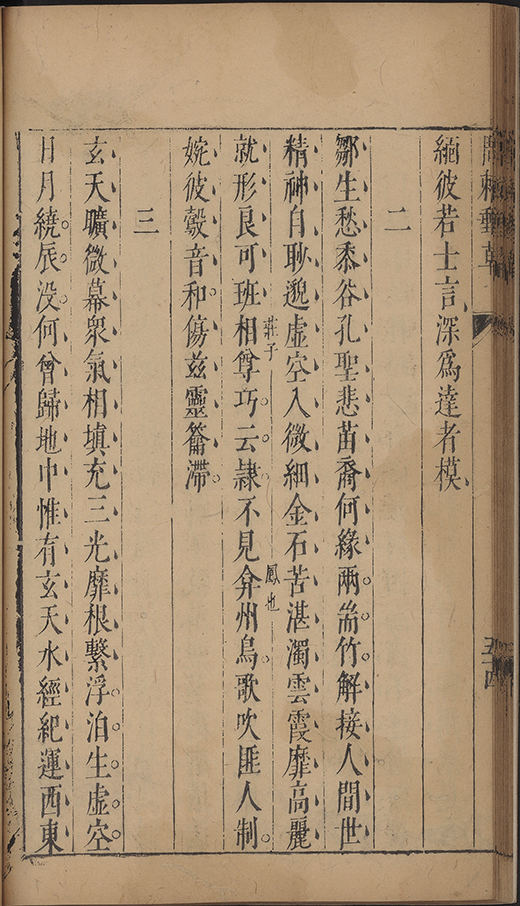 問棘郵草
五十四
緬彼若士言深爲達者模
二
鄒生愁黍谷孔聖悲苗裔何緣兩耑竹解接人間世
精神自眇邈虛空入微細金石苦湛濁雲霞靡高麗
莊子
鳳也
就形良可班相尊巧云隷不見弇州鳥歌吹匪人制
婉彼鷇音和傷兹靈籥滯
三
玄天曠微幕衆氣相填充三光靡根繫浮泊生虛空
日月繞辰没何曾歸地中惟有玄天水經紀運西東